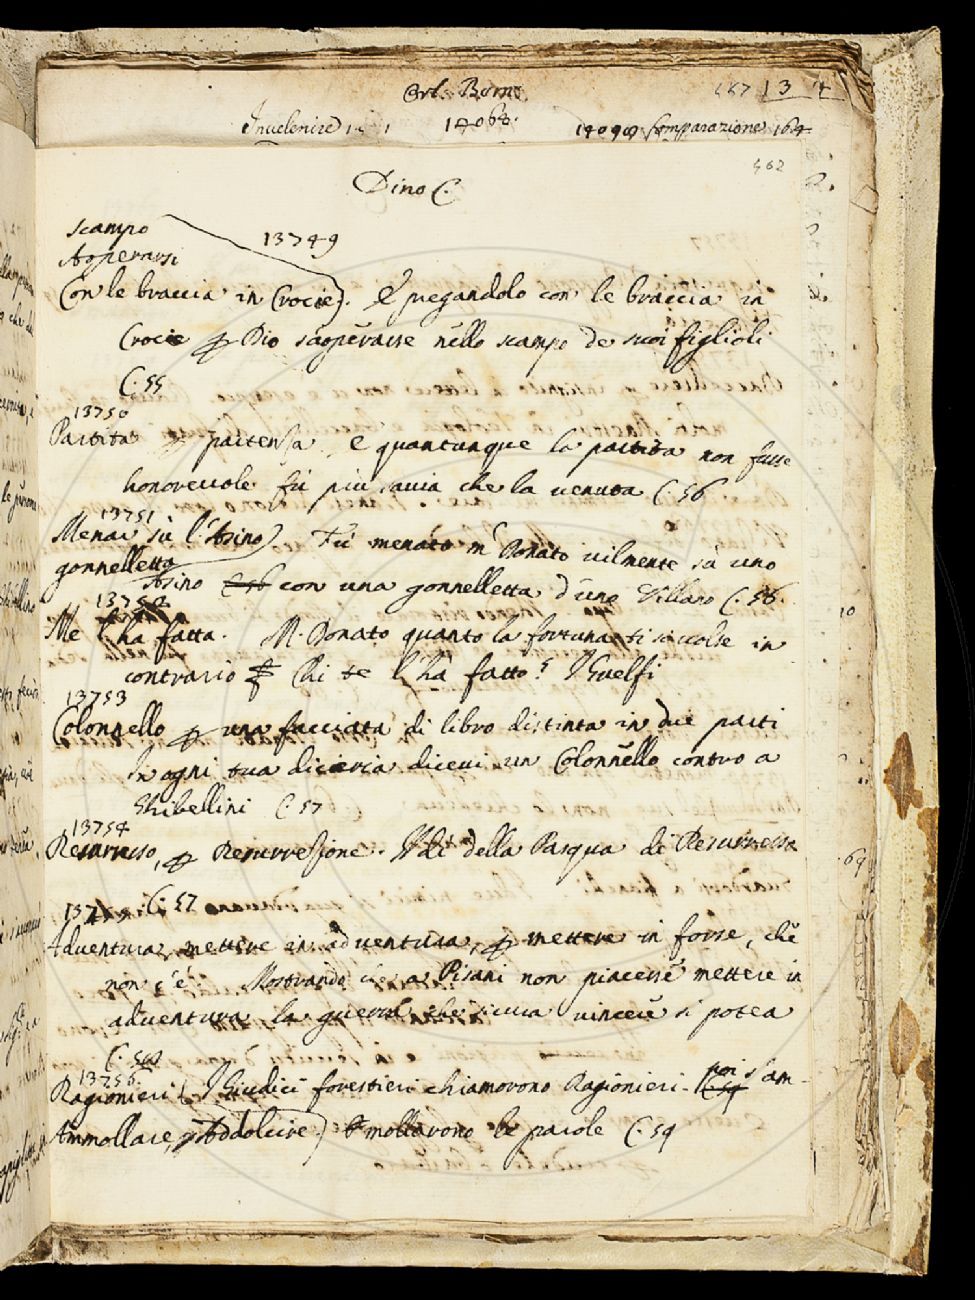 Orl. Born.
587 13 4
Invelenire 1 1 14068. 14098 Comparazione 164
562
Dino C.
scampo
Aoperarsi 13749
Con le braccia in Crocie). E pregandolo con le braccia in
Crocie Dio saoperasse nello scampo de suoi figlioli
C. 55
13750
Partita partenza e quantunque la partita non fusse
honorevole fù più savia che la venuta C. 56
13751
Menar sù l'Asino). Fù menato m Donato vilmente sù uno
gonnelletta
Asino con una gonnelletta d'uno Villano C. 56.
13752
Me l'ha fatta. M. Donato quanto la fortuna ti si volse in
contrario Chi te l'hà fatto? I Guelfi
13753
Colonnello una facciata di libro distinta in due parti
In ogni tua diceria dicevi un Colonnello contro a
Ghibellini C. 57
13754
Resurresso, Resurressione. Il dì della Pasqua di Resurresso
C. 57
Adventura, mettere in adventura, mettere in forse, che
non c'è. Mostrando ai Pisani non piacesse mettere in
adventura la guerra che sicura vincere si potea
C.
13756
Ragionieri (I Giudici forestieri chiamorono Ragionieri. poi s'am-
C. 59
Ammollare, Addolcire) Ammollavono le parole C. 59